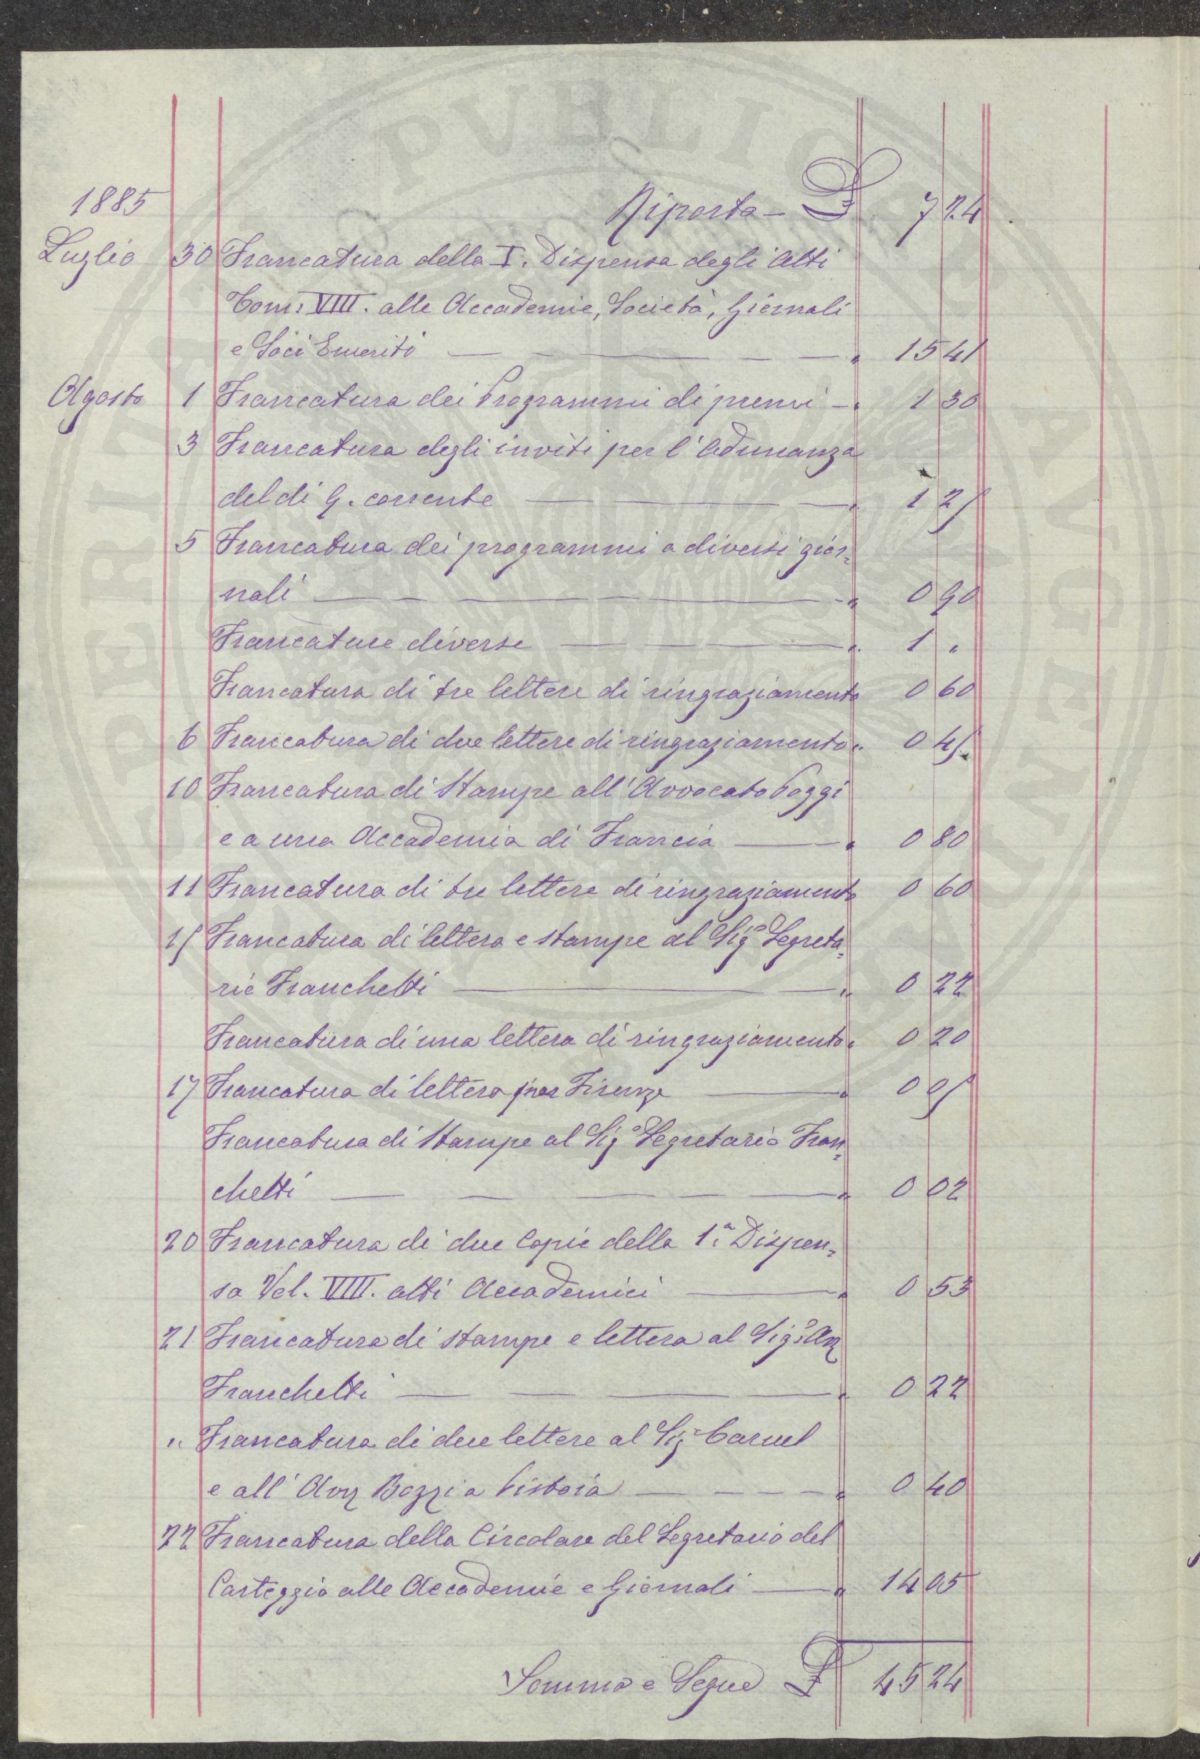 PROSPERITATI PVBLICAE AVGENDAE
1885 Riporto - £ 7 24
Luglio 30 Francatura della I. Dispensa degli Atti
Tom: VIII. alle Accademie, Società, Giornali
e Soci Emeriti — — — — — " 15 41
Agosto 1 Francatura dei Programmi di premi - " 1 30
3 Francatura degli inviti per l'Adunanza
del di 9. corrente — — — " 1 25
5 Francatura dei programmi a diversi gior=
nali — — — — — " 0 90
Francature diverse — — — — " 1 "
Francatura di tre lettere di ringraziamento 0 60
6 Francatura di due lettere di ringraziamento " 0 45
10 Francatura di Stampe all'Avvocato Poggi
e a una Accademia di Francia — — " 0 80
11 Francatura di tre lettere di ringraziamento 0 60
15 Francatura di lettera e stampe al Sigr Segreta=
rio Franchetti — — " 0 22
Francatura di una lettera di ringraziamento " 0 20
17 Francatura di lettera per Firenze — " 0 05
Francatura di Stampe al Sigr Segretario Fran=
chetti — — — — — " 0 02
20 Francatura di due Copie della 1.a Dispen=
sa Vol. VIII. atti Accademici — " 0 53
21 Francatura di stampe e lettera al Sigr Avv
Franchetti — — — — " 0 22
" Francatura di due lettere al Sigr Caruel
e all'Avv Bozzi a Pistoia — — — — " 0 40
22 Francatura della Circolare del Segretario del
Carteggio alle Accademie e Giornali — " 14 05
Somma e Segue £ 45 24